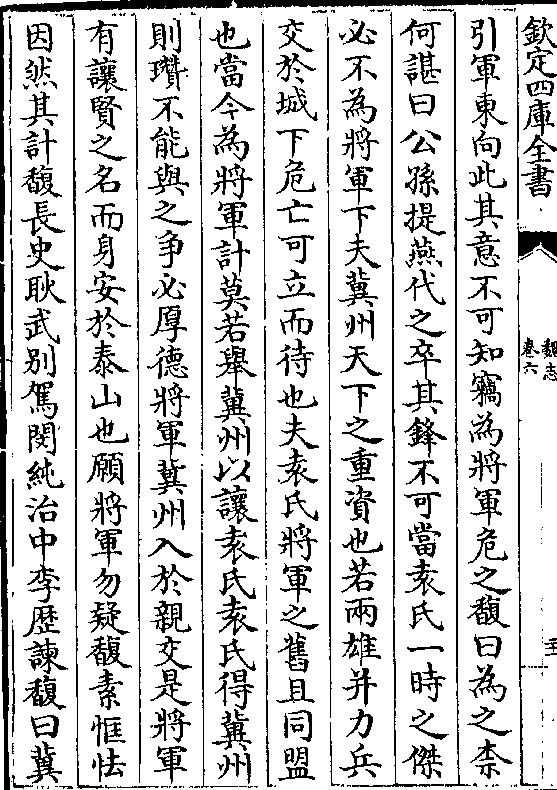 欽定四庫全書
魏志
卷六
引軍東向此其意不可知竊為將軍危之馥曰為之柰
何諶曰公孫提燕代之卒其鋒不可當袁氏一時之傑
必不為將軍下夫冀州天下之重資也若兩雄并力兵
交於城下危亡可立而待也夫袁氏將軍之舊且同盟
也當今為將軍計莫若舉冀州以讓袁氏袁氏得冀州
則瓚不能與之爭必厚德將軍冀州入於親交是將軍
有讓賢之名而身安於泰山也願將軍勿疑馥素恇怯
因然其計馥長史耿武別駕閔純治中李歴諫馥曰冀